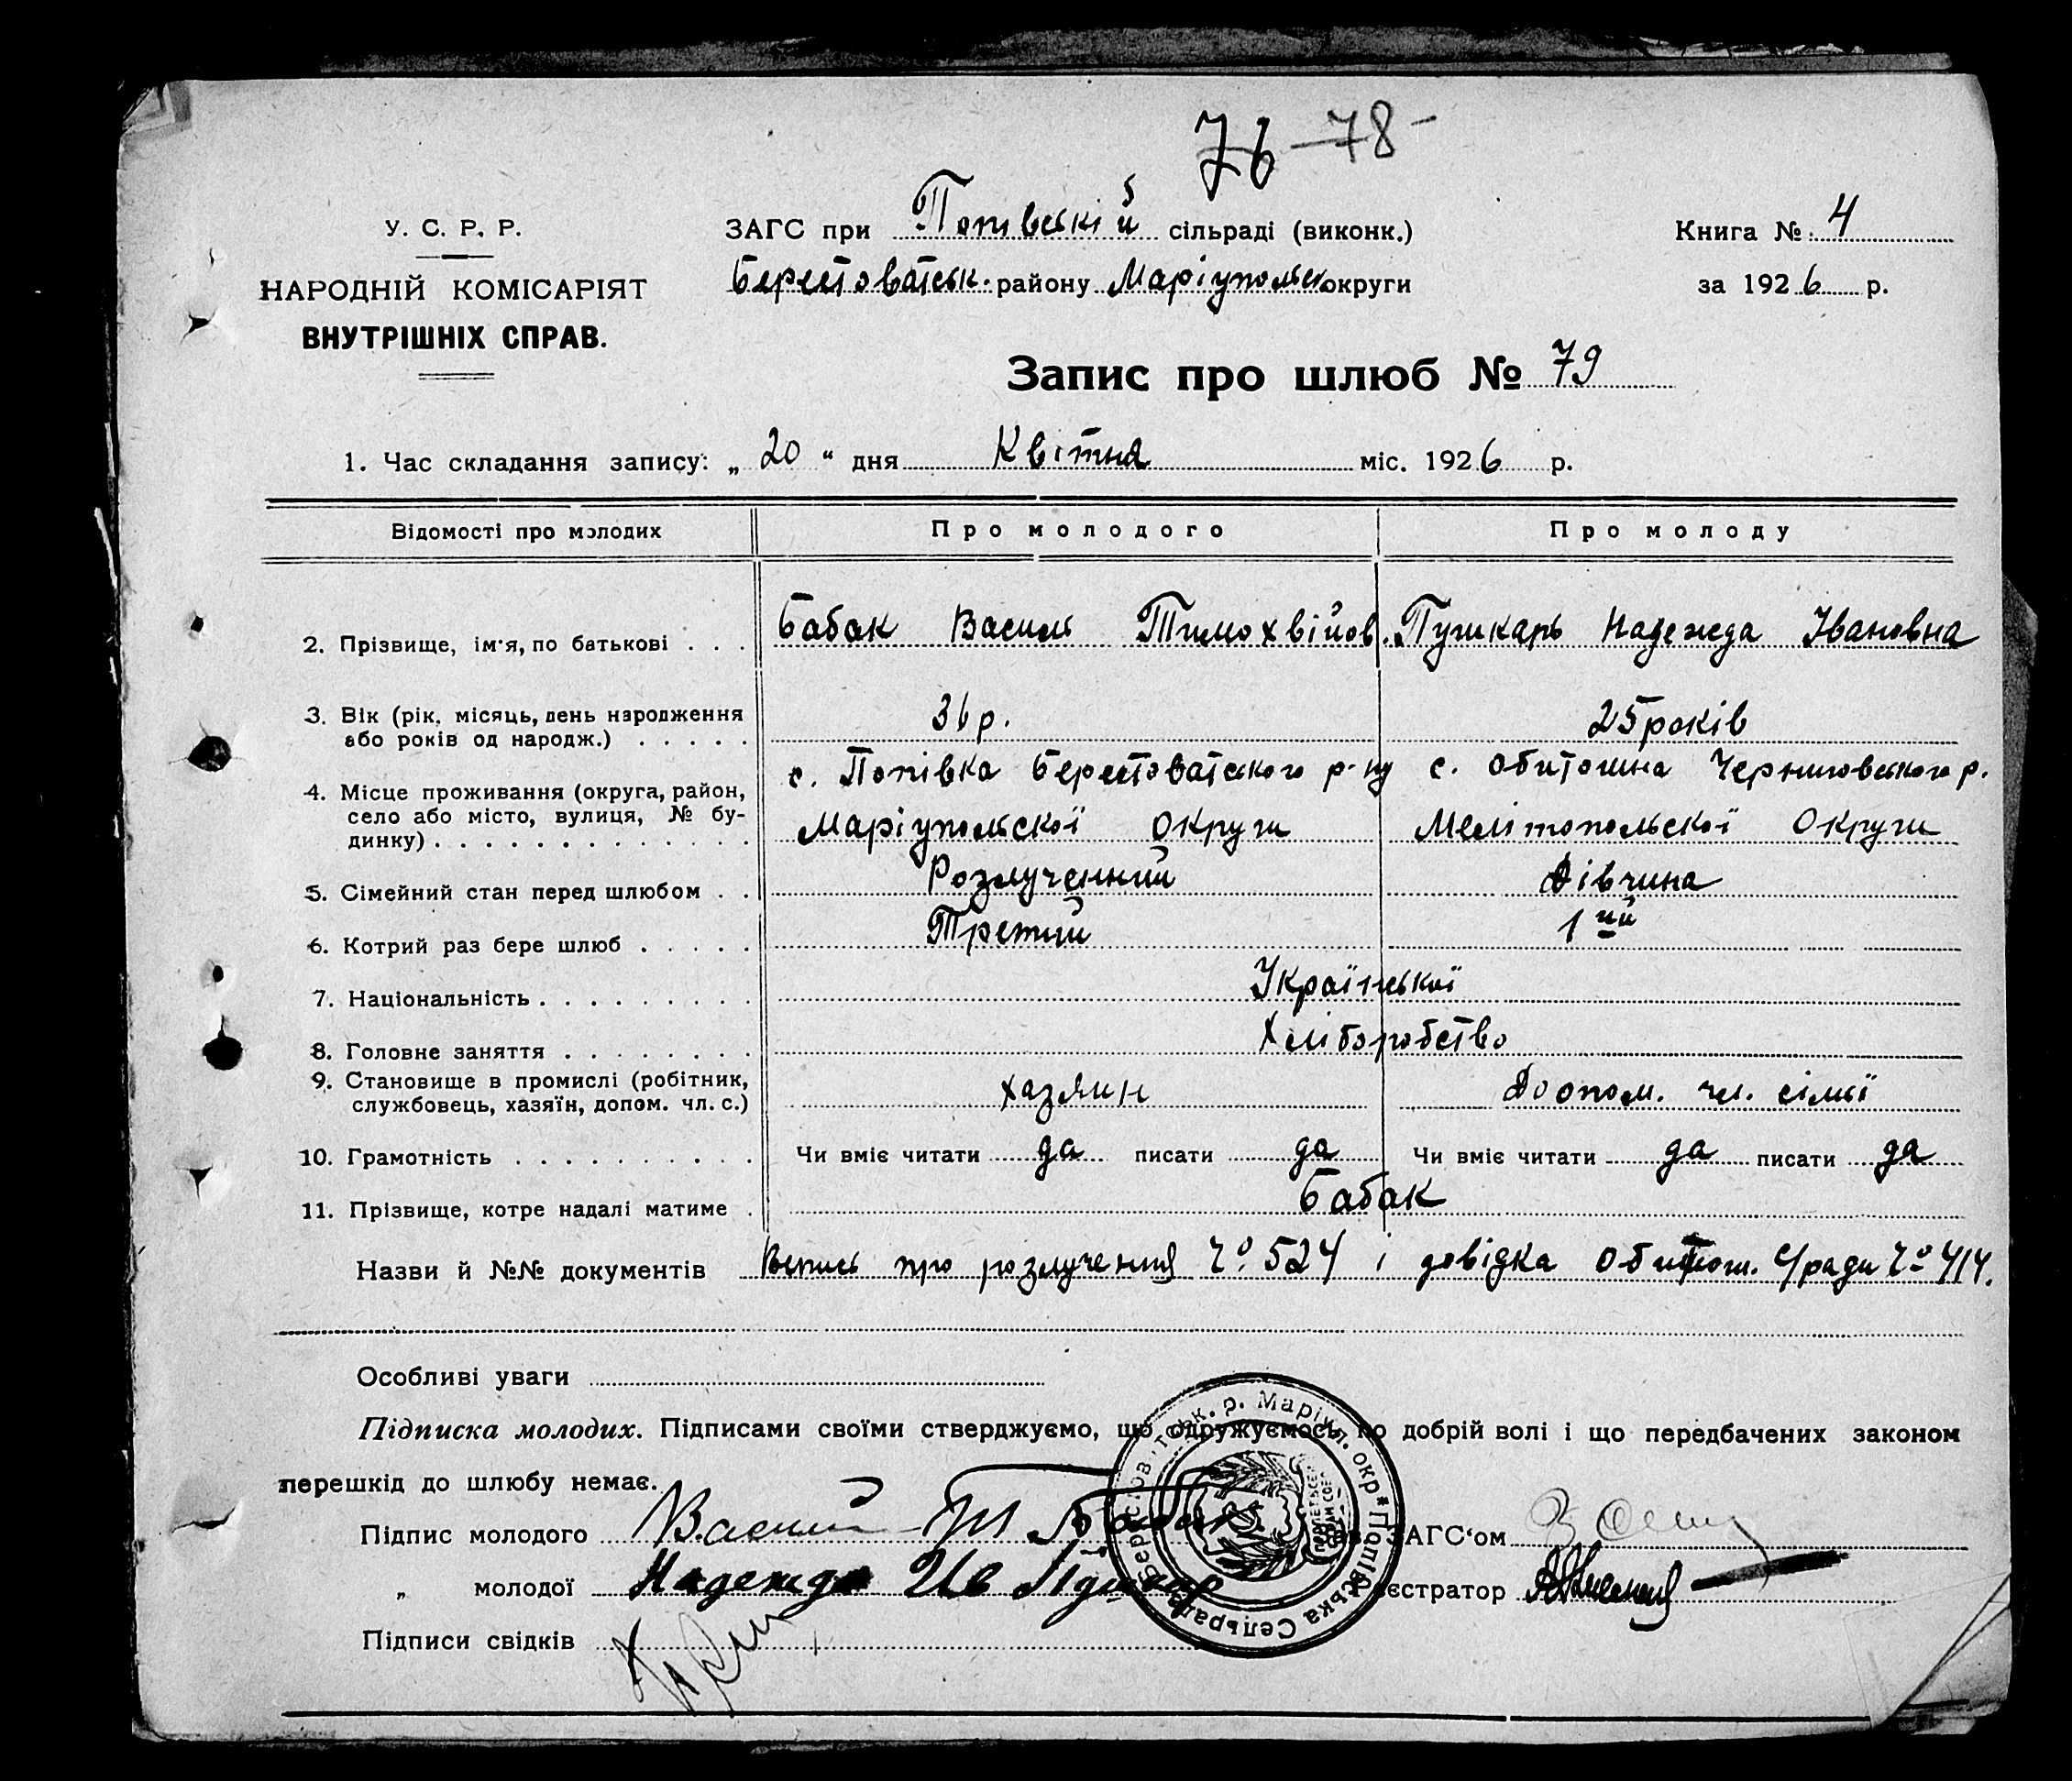 76 - 78 -
У. С. Р. Р.
НАРОДНІЙ КОМІСАРІЯТ
ВНУТРІШНІХ СПРАВ.
ЗАГС при Попівській сільраді (виконк.)
Берестоватськ. району Маріупольськ округи
Книга № 4
за 1926 р.
Запис про шлюб № 79
1. Час складання запису: „ 20 “ дня Квітня міс. 1926 р.
Відомості про молодих Про молодого Про молоду
2. Прізвище, ім'я, по батькові . . . Бабак Василь Тимохвійов. Пушкарь Надежда Івановна
3. Вік (рік, місяць, день народження або років од народж.) . . . . . 36 р. 25 років
4. Місце проживання (округа, район, село або місто, вулиця, № будинку) . . . с. Попівка Берестоватського р-ну Маріупольскої Округи с. Обиточна Черниговського р. Мелітопольскої Округи
5. Сімейний стан перед шлюбом . . Розлученний Дівчина
6. Котрий раз бере шлюб . . . . . Третий 1ий
7. Національність . . . . . . . . . Української
8. Головне заняття . . . . . . . . Хліборобство
9. Становище в промислі (робітник, службовець, хазяїн, допом. чл. с.) хазяин Доопом. чл. сімьї
10. Грамотність . . . . . . . . . . Чи вміє читати да писати да Чи вміє читати да писати да
11. Прізвище, котре надалі матиме . Бабак
Назви й №№ документів Випись про розлучения Ч° 524 і довідка Обиточ. С/ради Ч° 414.
Особливі уваги
Підписка молодих. Підписами своїми стверджуємо, що одружуємось по добрій волі і що передбачених законом
перешкід до шлюбу немає.
Підпис молодого Василий Т Бабак
Зав. ЗАГС'ом
„ молодої Надежда Ив Пушкар
Реєстратор
Підписи свідків
Берестоватськ. р. Маріуп. окр * Попівська Сельрада